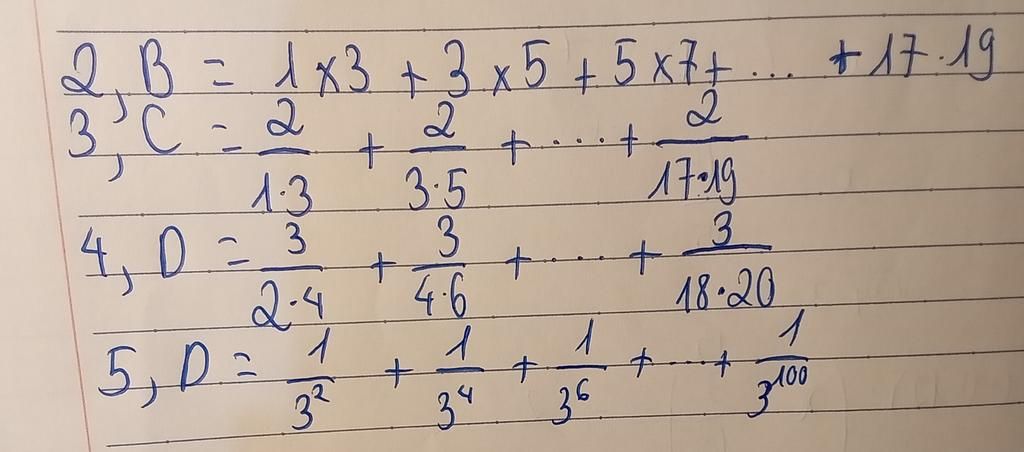 2, B = 1 x 3 + 3 x 5 + 5 x 7 + ... + 17 . 19
3, C = 2/(1·3) + 2/(3·5) + ... + 2/(17·19)
4, D = 3/(2·4) + 3/(4·6) + ... + 3/(18·20)
5, D = 1/3² + 1/3⁴ + 1/3⁶ + ... + 1/3¹⁰⁰